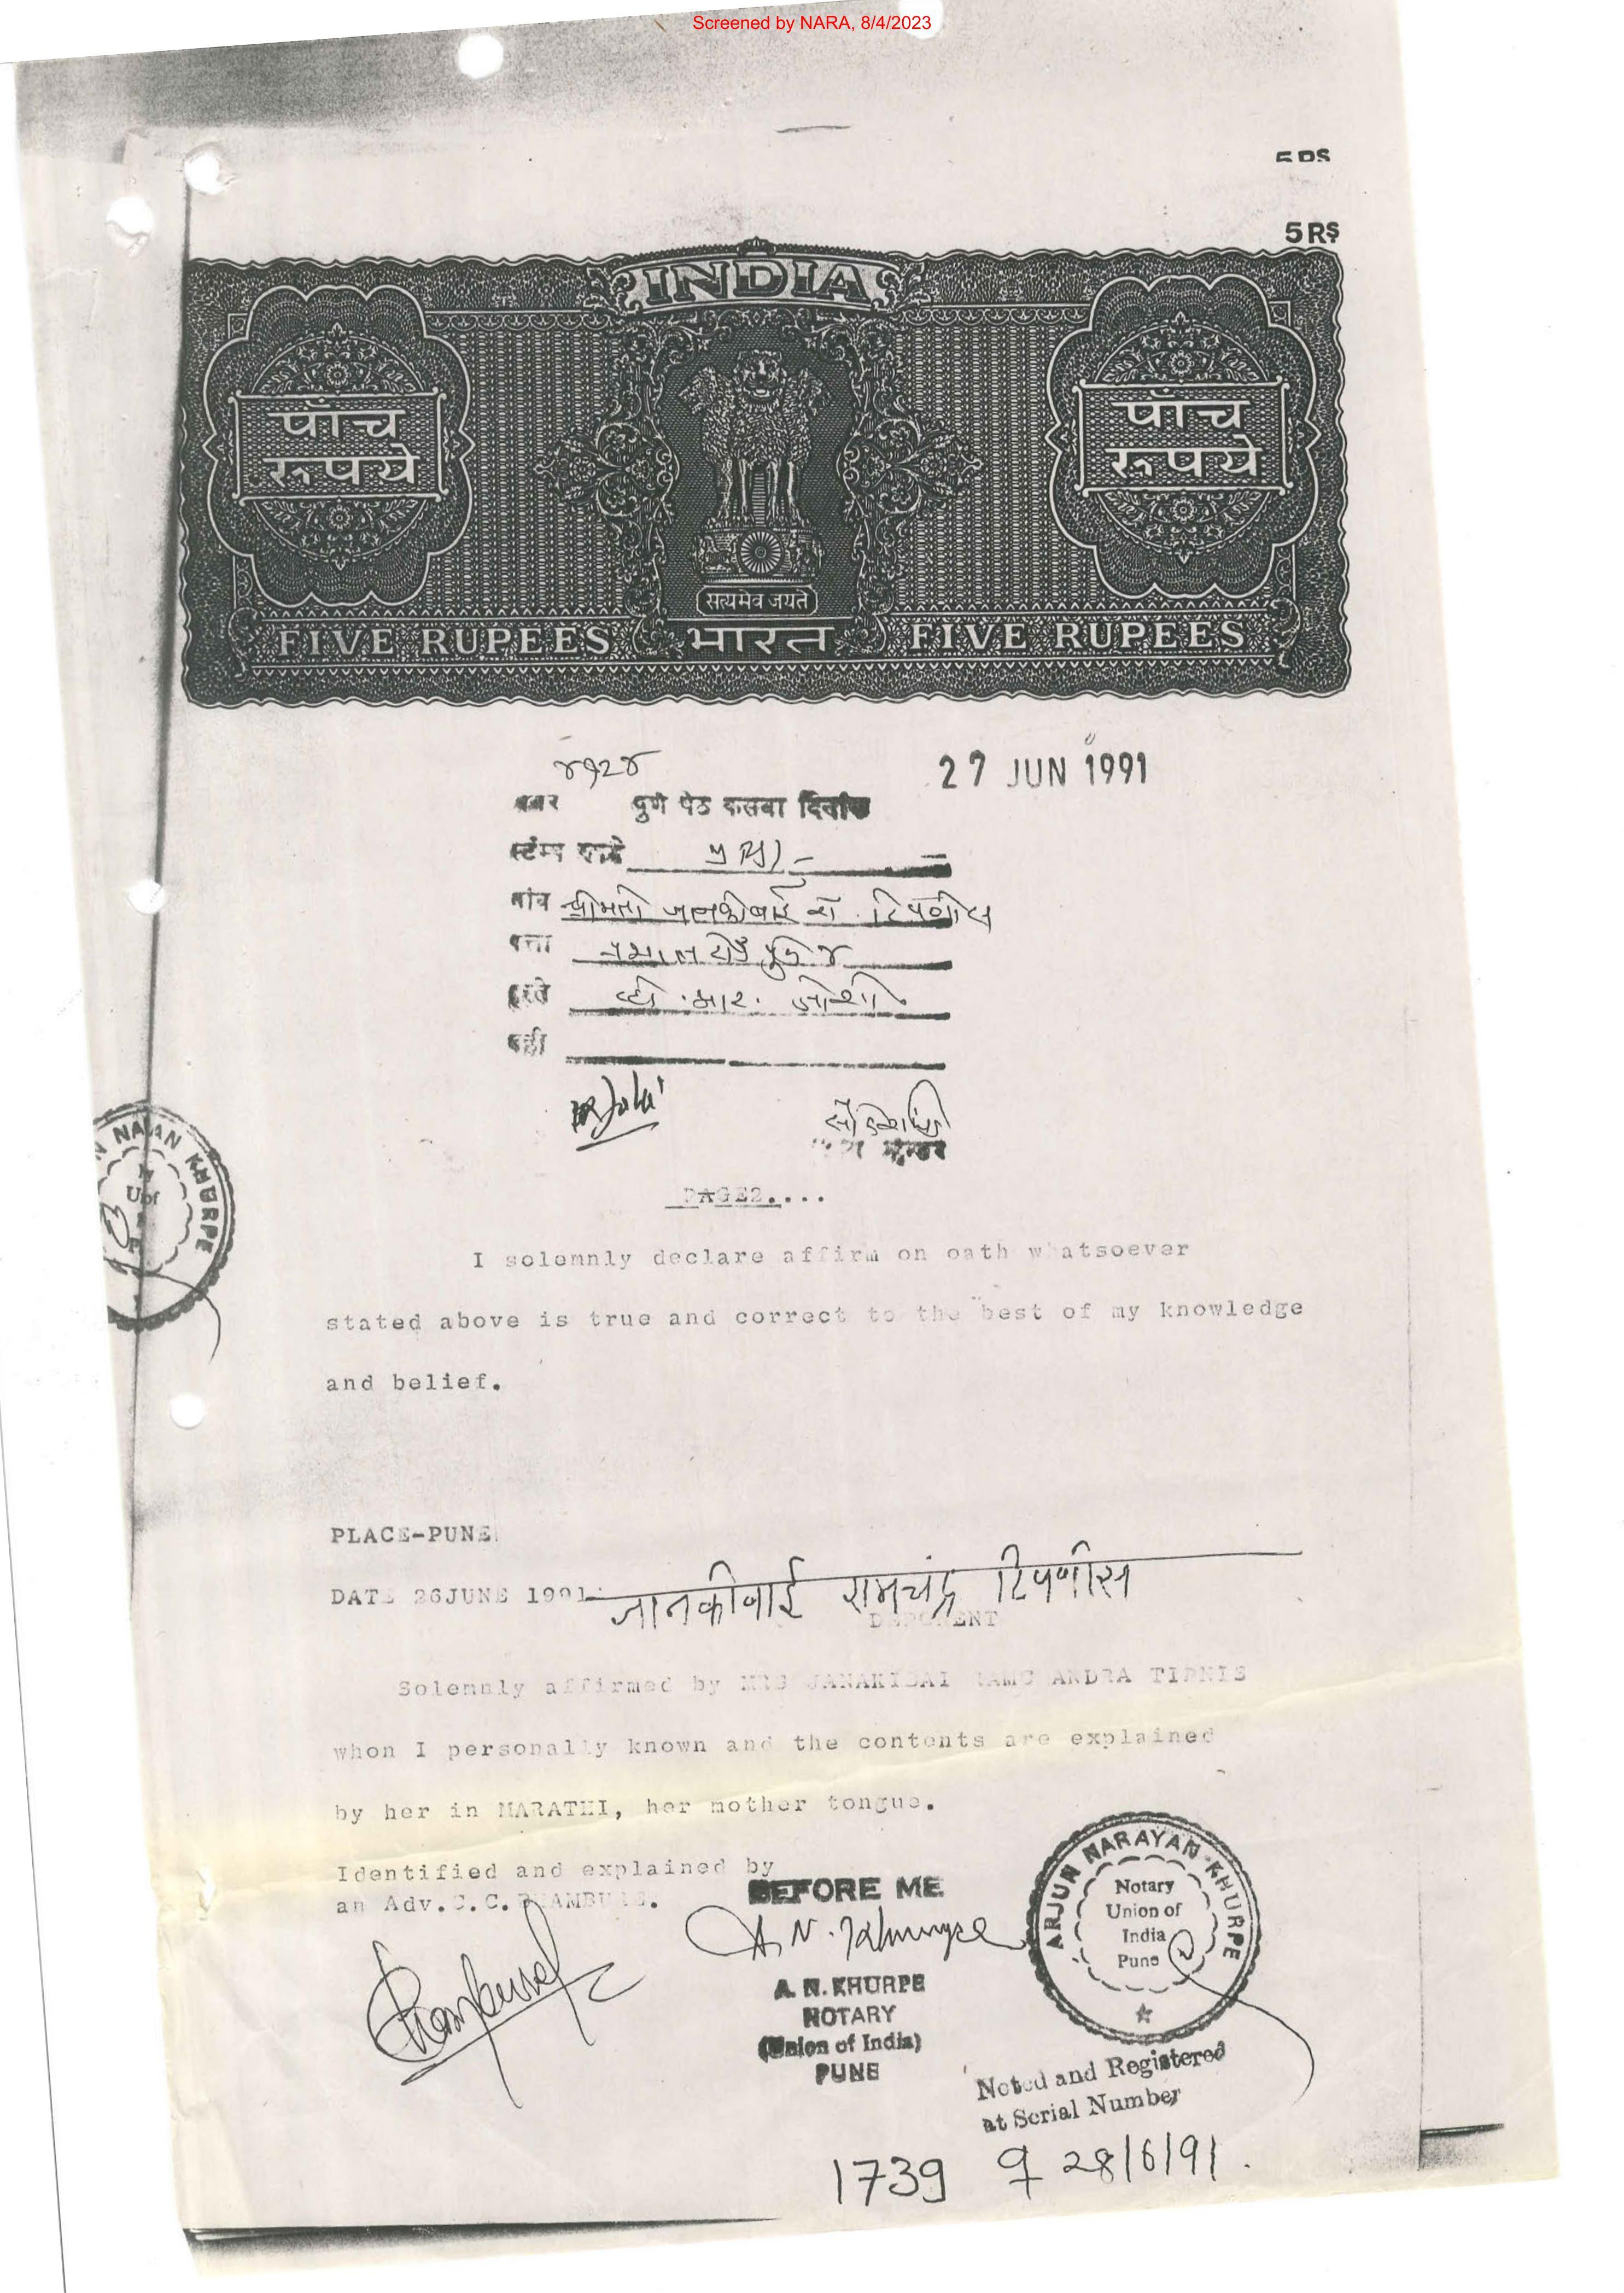 Screened by NARA, 8/4/2023
5 RS
5 RS
INDIA
पाँच रुपये
पाँच रुपये
सत्यमेव जयते
FIVE RUPEES भारत FIVE RUPEES
४१२४
27 JUN 1991
नंबर पुणे पेठ कसबा दिनांक
स्टॅम्प
नांव श्रीमती जानकीबाई रा. टिपणीस
पत्ता
हस्ते व्ही. आर. जोशी
सही
PAGE2....
NARAYAN KHURPE
I solemnly declare affirm on oath whatsoever
stated above is true and correct to the best of my knowledge
and belief.
PLACE-PUNE
DATE 26JUNE 1991
जानकीबाई रामचंद्र टिपणीस
DEPONENT
Solemnly affirmed by MRS JANAKIBAI RAMC ANDRA TIPNIS
whon I personally known and the contents are explained
by her in MARATHI, her mother tongue.
Identified and explained by
an Adv.C.C.
BEFORE ME
A. N. Khurpe
A. N. KHURPE
NOTARY
(Union of India)
PUNE
ARJUN NARAYAN KHURPE
Notary
Union of
India
Pune
Noted and Registered
at Serial Number
1739 28/6/91.